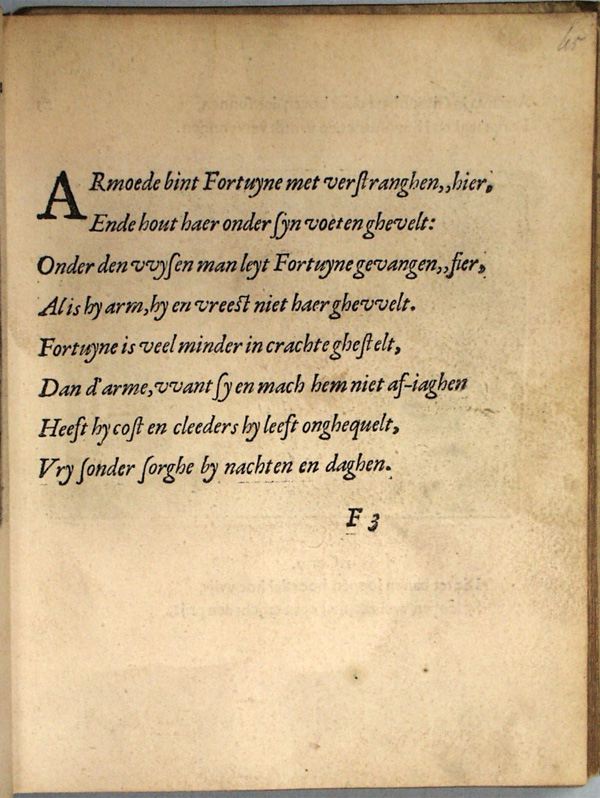 65
ARmoede bint Fortuyne met verſtranghen,,hier,
Ende hout haer onder ſyn voeten ghevelt:
Onder den vvyſen man leyt Fortuyne gevangen,,fier,
Al is hy arm, hy en vreeſt niet haer ghevvelt.
Fortuyne is veel minder in crachte gheſtelt,
Dan d'arme, vvant ſy en mach hem niet af-iaghen
Heeft hy coſt en cleeders hy leeft onghequelt,
Vry ſonder ſorghe by nachten en daghen.
F 3